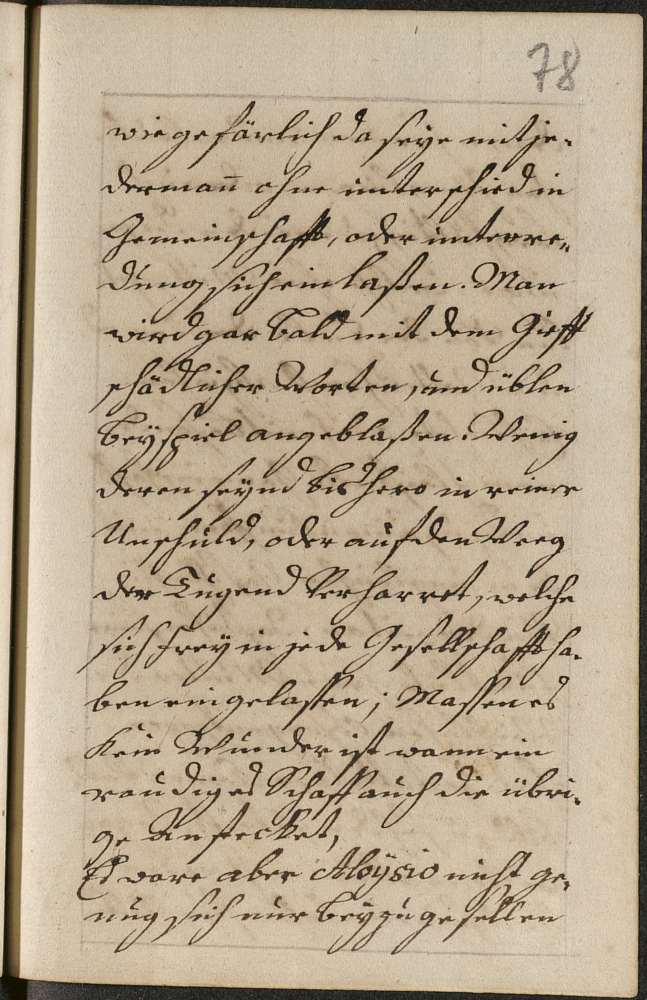 78
wie gefärlich da seye mit je-
dermañ ohne unterschid in
Gemeinschafft, oder unterre-
dung sich einlaßen. Man
wird gar bald mit dem Gifft
schädlicher Worten, und üblen
beyspiel angeblaßen. Wenig
deren seynd bishero in reiner
Unschuld, oder auf den Weeg
der Tugend Verharret, welche
sich frey in jede Gesellschafft ha-
ben eingelassen; Massen es
Kein Wunder ist wann ein
raudiges Schaff auch die übri-
ge Anstecket,
Es ware aber Aloysio nicht ge-
nug sich nur beyzugesellen